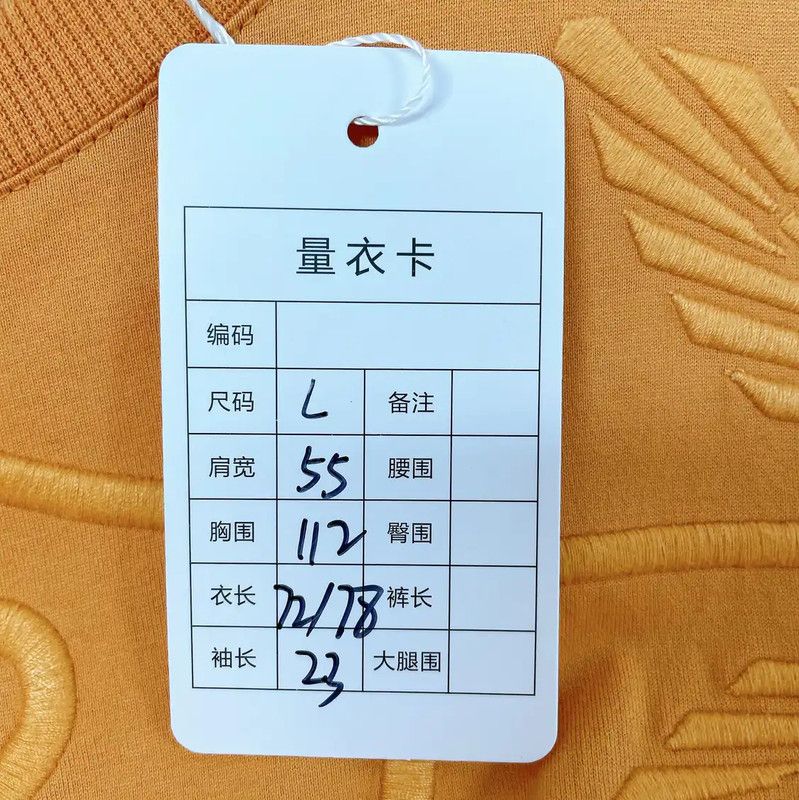 量衣卡
编码
尺码 L 备注
肩宽 55 腰围
胸围 112 臀围
衣长 72/78 裤长
袖长 23 大腿围